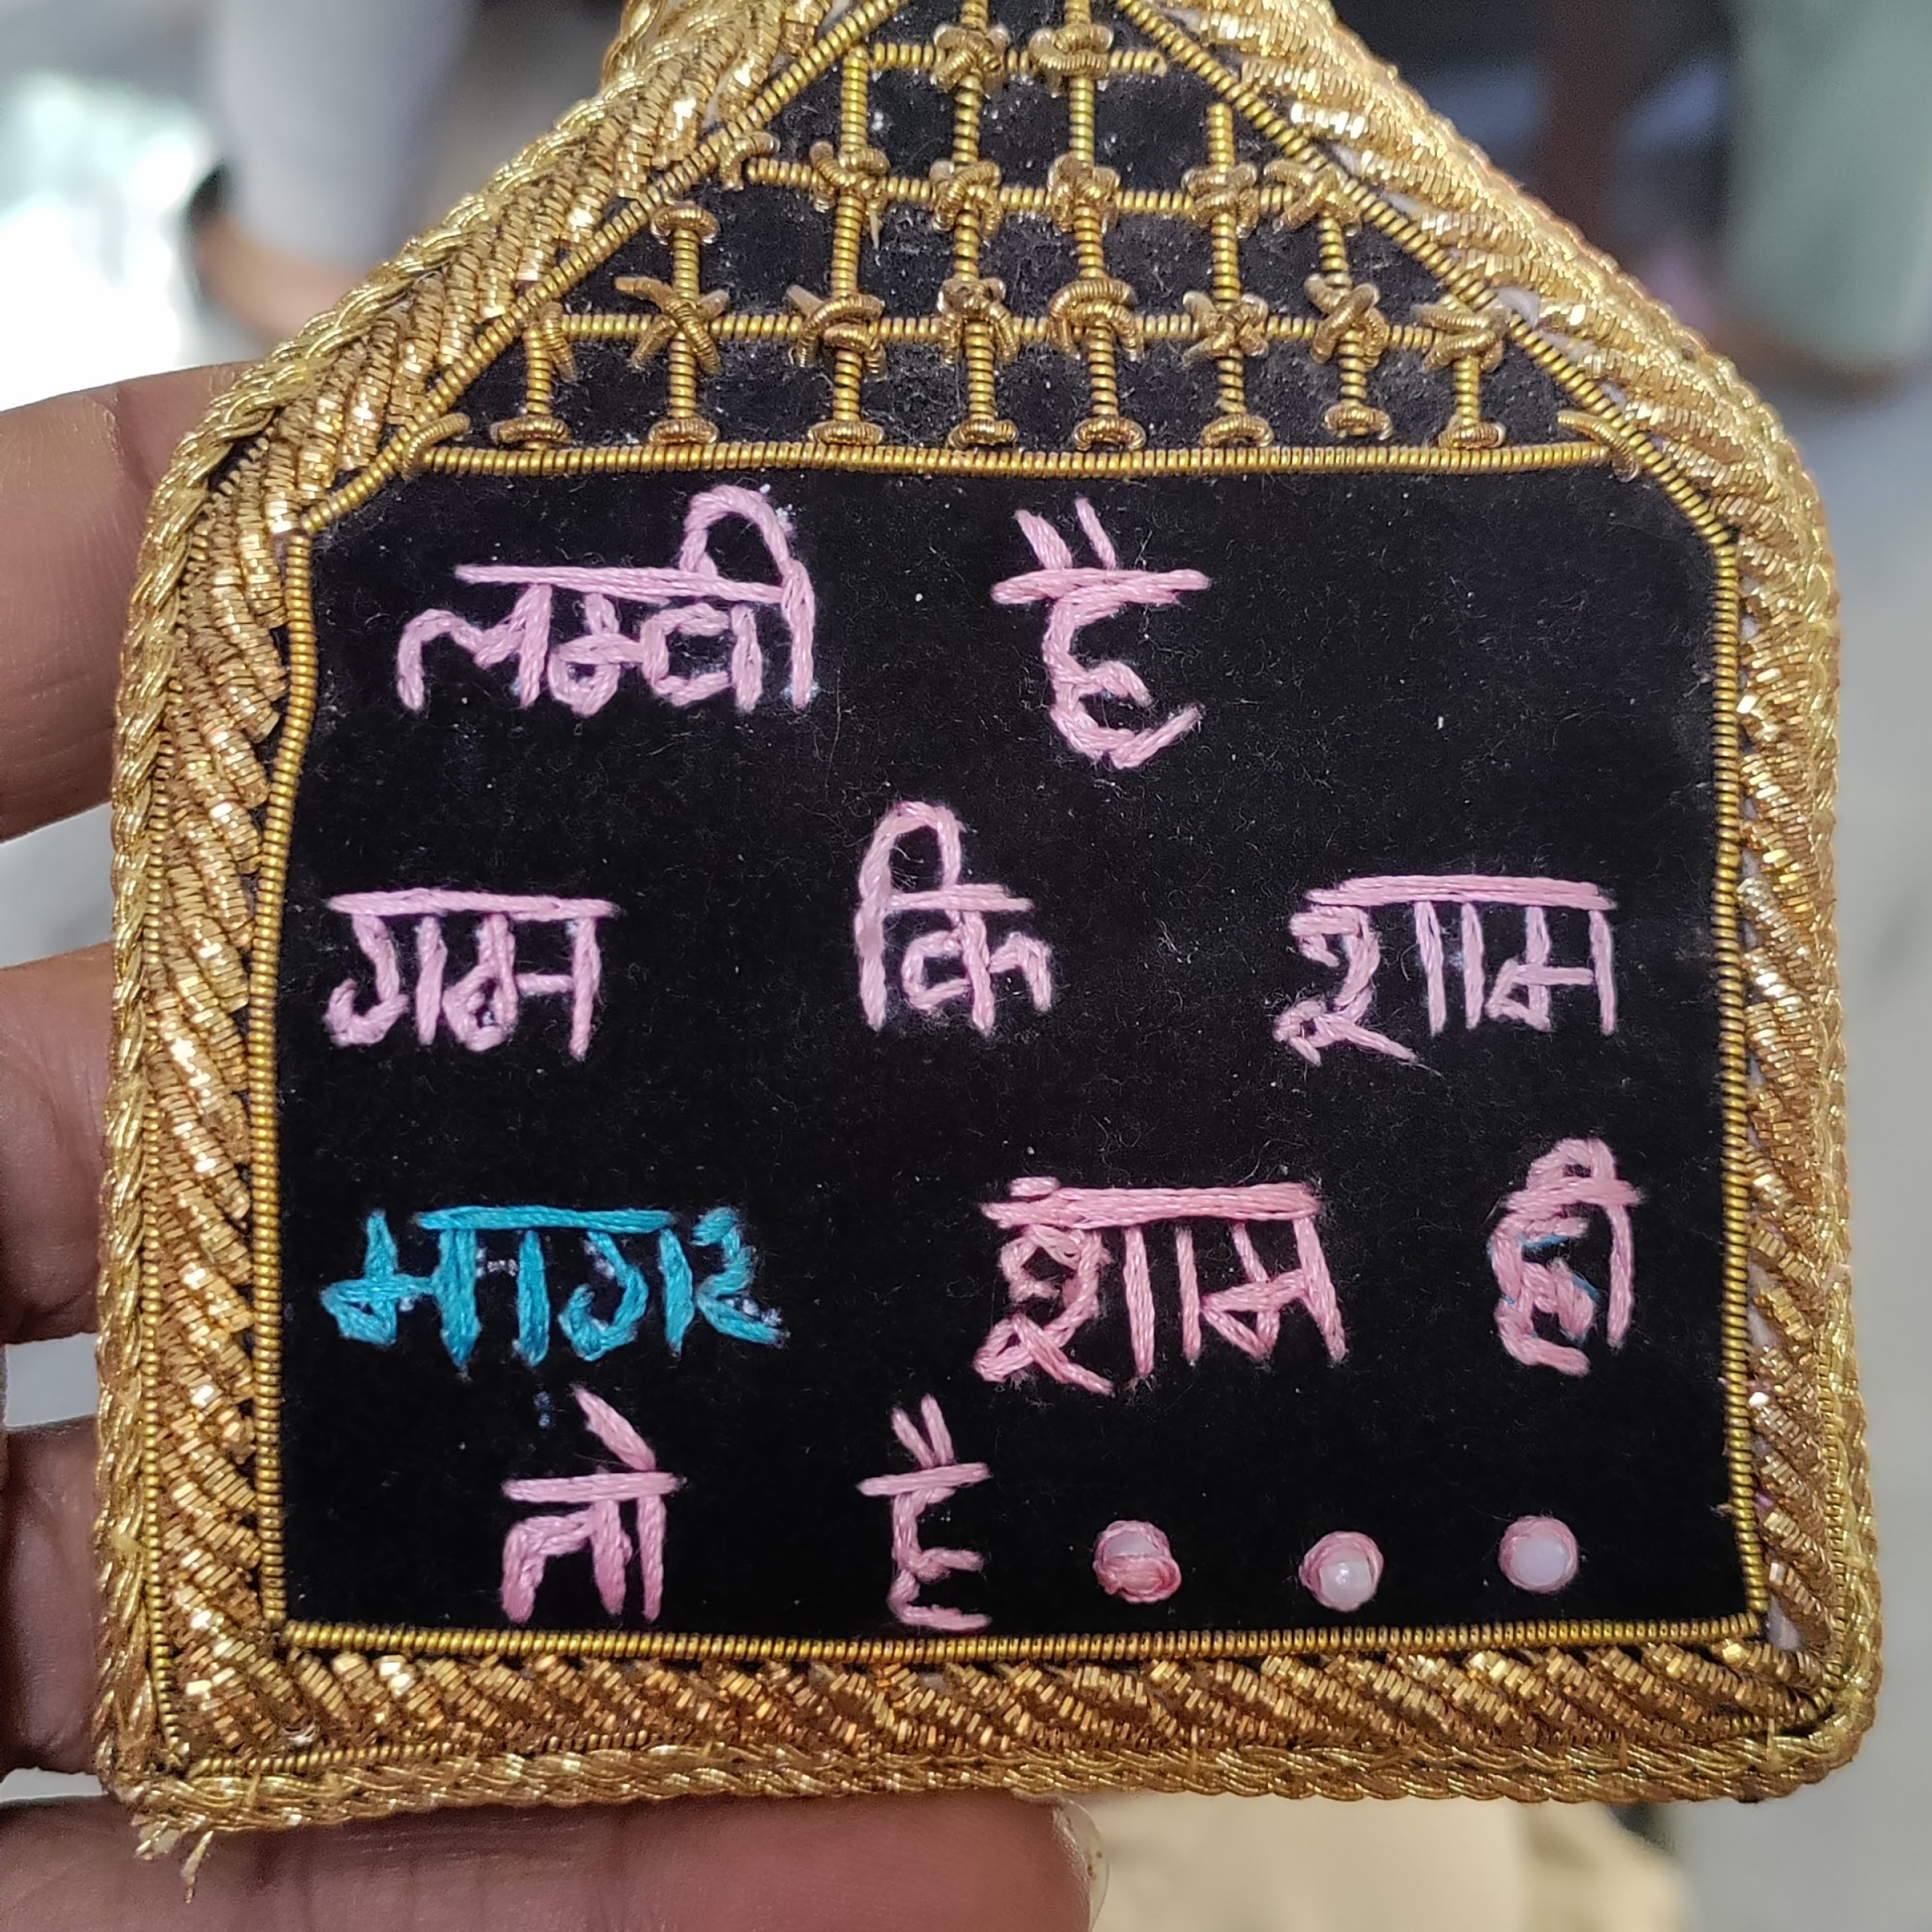 लम्बी है
गम कि शाम
मागर शाम ही
तो है...